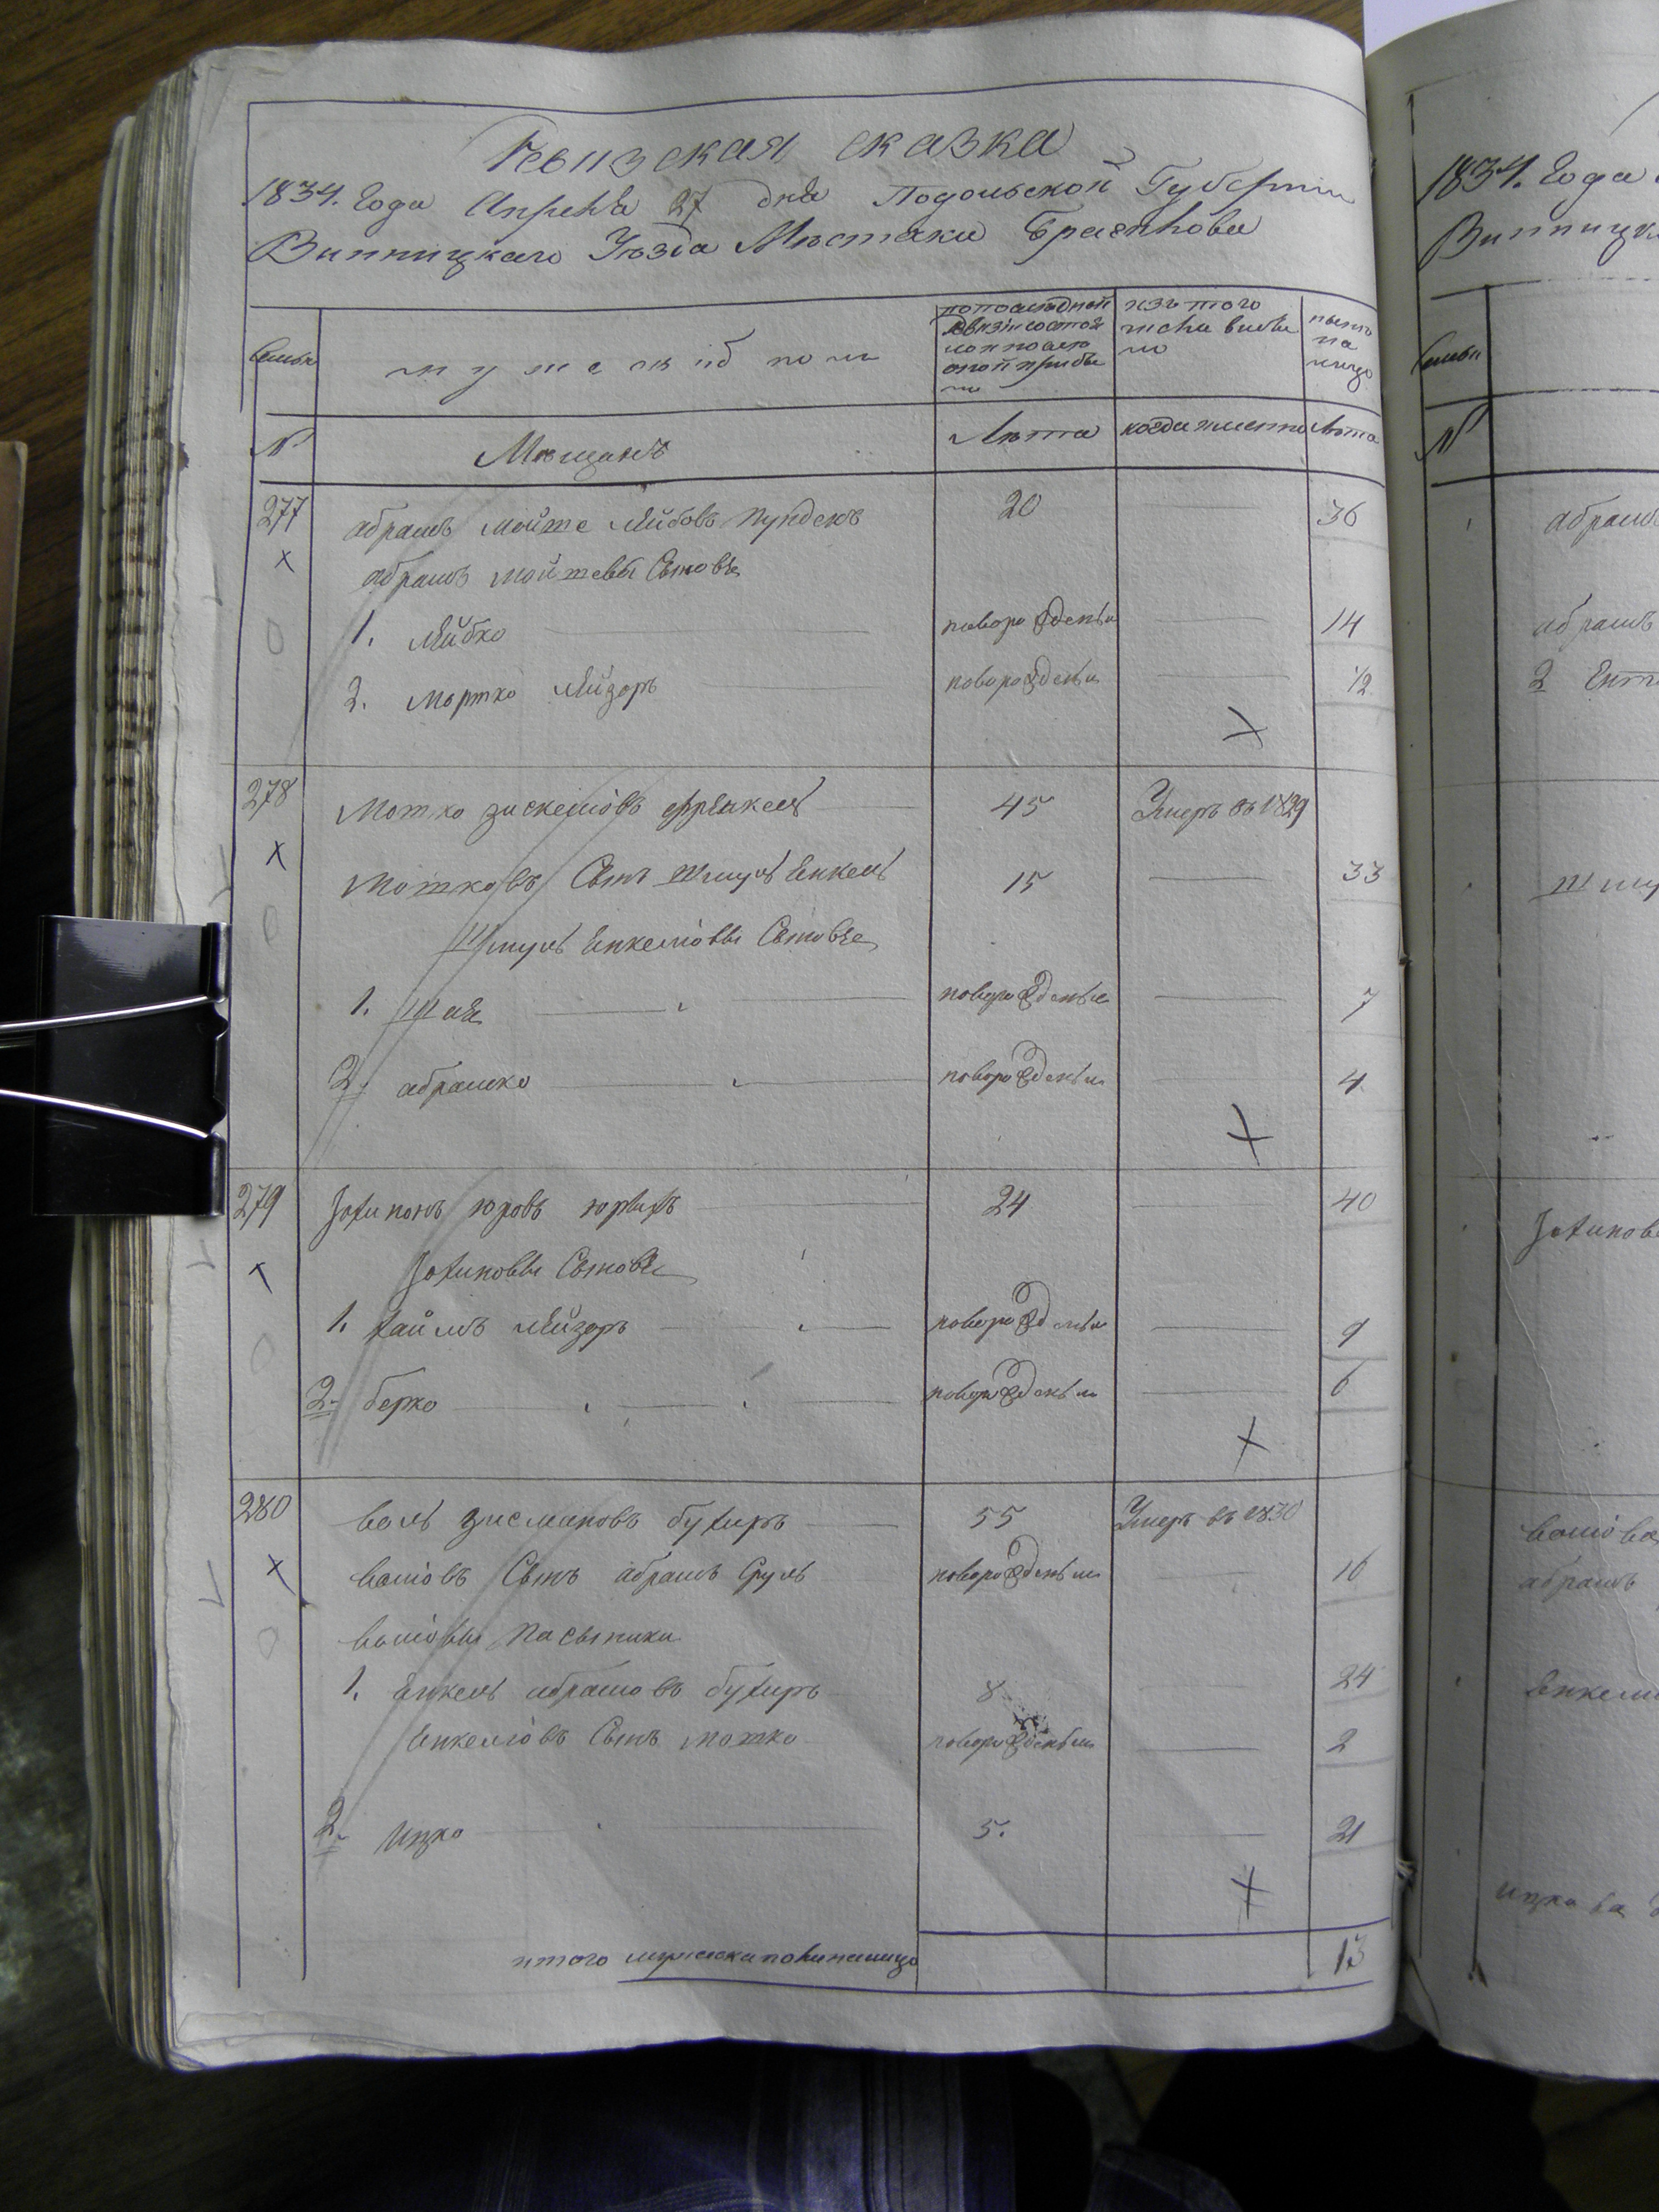 Ревизская сказка
1834. Года Апреля 27 дня Подольской Губернии
Винницкаго Уѣзда Мѣстечки Браилова
Семьи
мужеский полъ
по последней ревизи состояло и после оной прибыло
изъ того числа выбыло
нынѣ на лицо
№
Мѣщанъ
Лѣта
когда именно
Лѣта
277 абрамъ мойше Лейбовъ 20 36
абрамъ мойшевы Сыновья
1. Лейбко новорожденъ 14
2. Мортко Лейзоръ новорожденъ 1/2
278 Мотко зискелiовъ френкель 45 Умеръ въ 1829
Мотковъ Сынъ Шмуль Енкель 15 33
Шмуль Енкелiовы Сыновья
1. Шая новорожденъ 7
2. абрамко новорожденъ 4
279 Iохинонъ юровъ 24 40
Iохиновы Сыновья
1. хаимъ Лейзоръ новорожденъ 9
2. берко новорожденъ 6
280 воль зисмановъ бухиръ 55 Умеръ въ 1830
волiовъ Сынъ абрамъ Сруль новорожденъ 16
волiовы пасынки
1. Енкель абрамовъ бухиръ 8 24
Енкелiовъ Сынъ мотко новорожденъ 2
2. Ицко 5. 21
итого мужеска пола налицо 13
1834. Года
Винницка
Семьи
№
абрамъ
абрамъ
2 Ент
Шму
Iохинов
волiова
абрамъ
Енкелi
ицкова